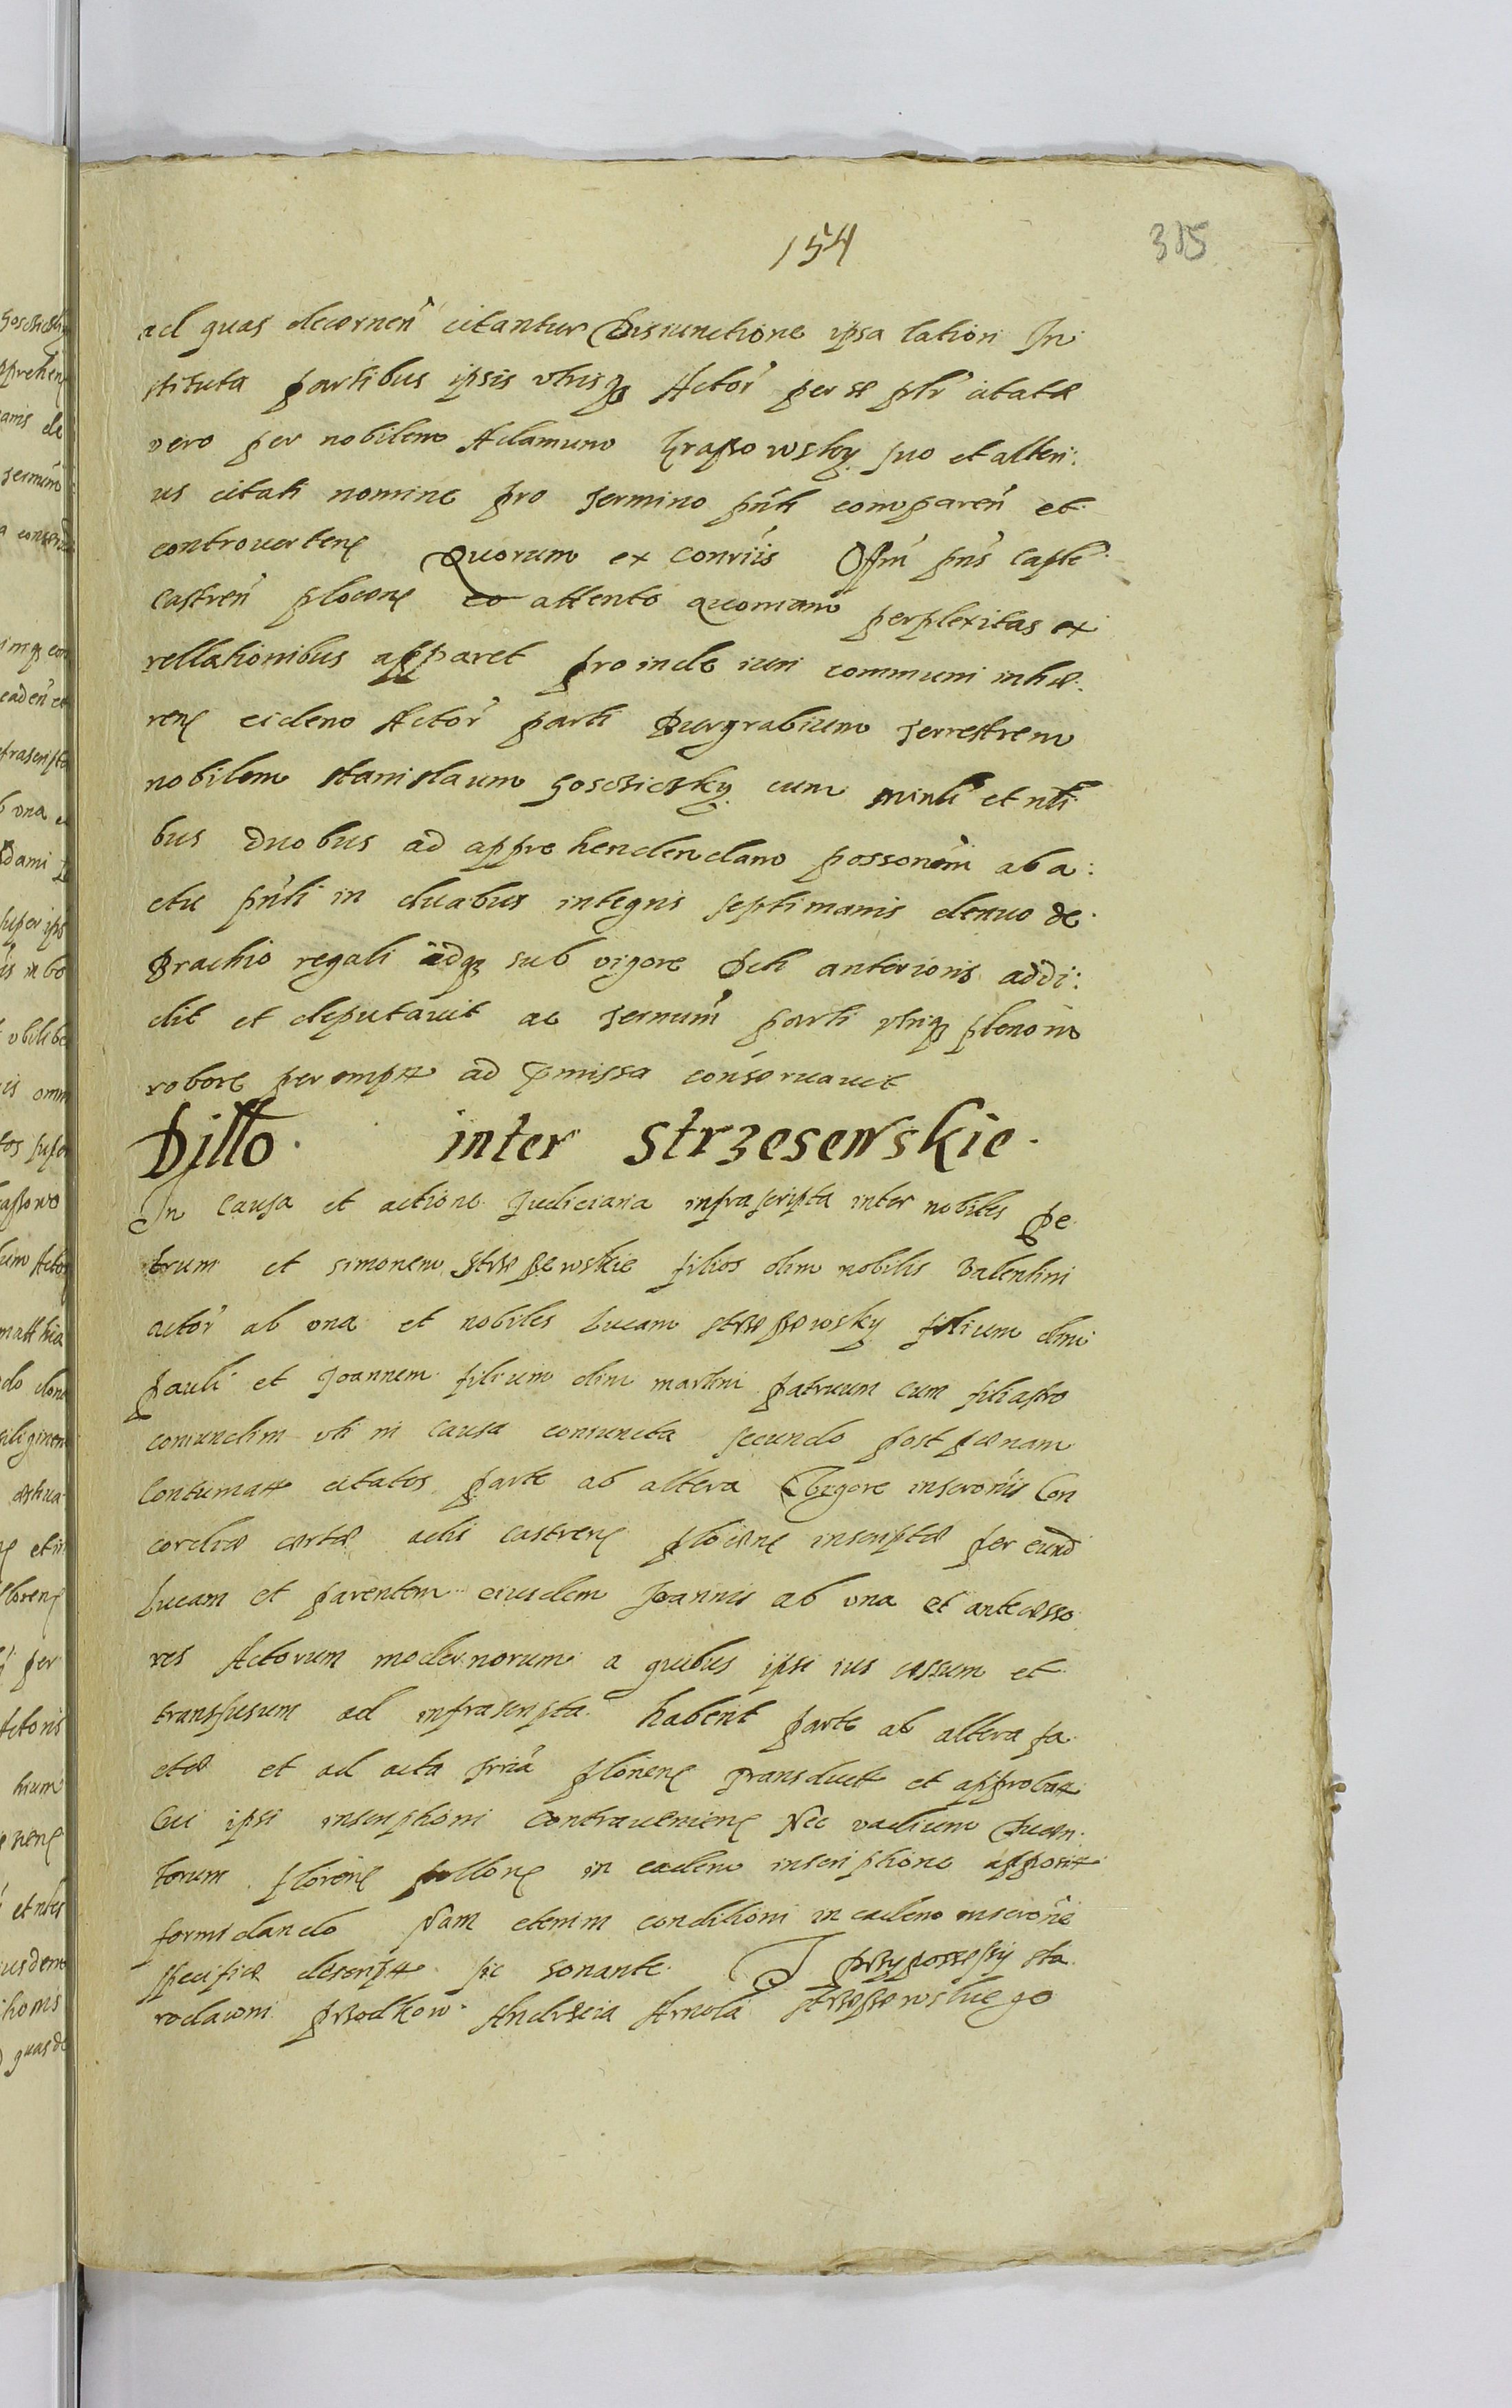 154
315
ad quas decernen̄ citantur Disiunctione ipsa lationi In
stituta partibus ipsis vtrisqȝ Actor̄ per se pʳʳ citatæ
vero per nobilem Adamum suo et alteri:
us citati nomine pro Termino pn̄ti comparen̄ et
controverten Quorum ex conv̄iis Offm̄ pn̄s Capłe
Castren̄ plocen eo attento quoniam perplexitas ex
rellationibus apparet proinde iuri communi inhæ:
ren eidem Actor̄ parti Burgrabium Terrestrem
nobilem Stanislaum Gosczicżky cum minłi et nłi
bus duobus ad apprehendendam posson̄em ab a:
ctu pn̄ti in duabus integris septimanis denuo de
Brachio regali idqȝ sub vigore Dcti anterioris addi:
dit et deputavit ac Termin̄ parti vtriqȝ pleno in
robore perempt ad p̄missa conservavit
Ditto. inter Strzesewskie.
In causa et actione Judiciaria infrascripta inter nobiles Pe
trum et Simonem Strzeszewskie filios olim nobilis Valentini
actor̄ ab vna et nobiles Lucam Strzeszewsky filium olim
Pauli et Joannem filium olim Martini patruum cum filiastro
coniunctim vti in causa coniuncta secundo post pœnam
Contumat citatos parte ab altera Vigore inscron̄is Con
cordiæ certæ actis Castren plocen inscriptæ per eund̄
Lucam et parentem eiusdem Joannis ab vna et antecesso
res Actorum modernorum a quibus ipsi ius cessum et
transfusum ad infrascripta habent parte ab altera fa
ctæ et ad acta plonen transduct et approbat
Cui ipsi inscriptioni contravenien Nec vadium Ducen
torum floren pollon in eadem inscriptione apposit
formidando Nam etenim conditioni in eadem inscron̄e
specifice descript sic sonante J przypossessij sta
rodawni przodkow Andrzeia Arnola Strzeszewskiego